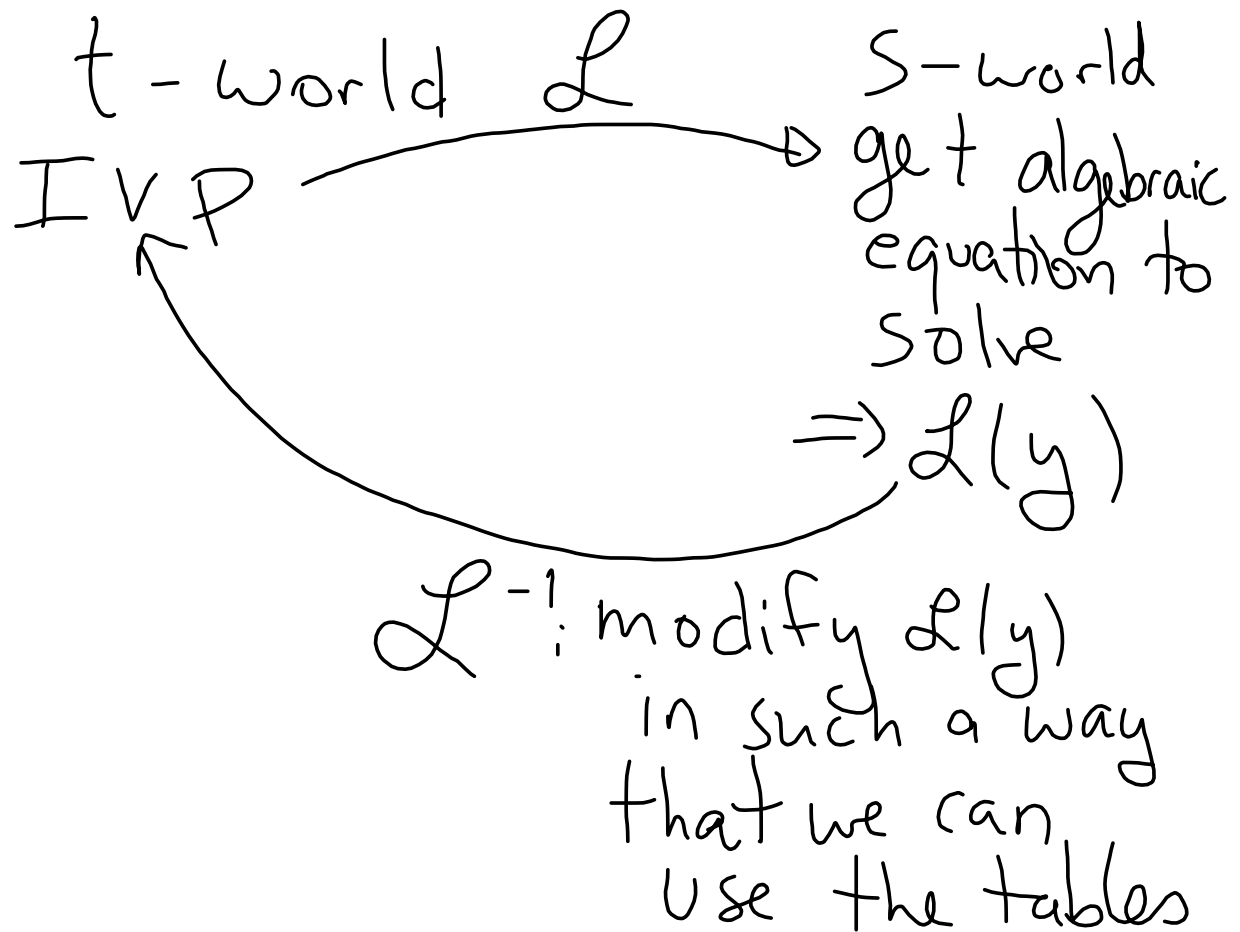 t-world ℒ s-world
IVP get algebraic
equation to
solve
⇒ ℒ(y)
ℒ⁻¹: modify ℒ(y)
in such a way
that we can
use the tables